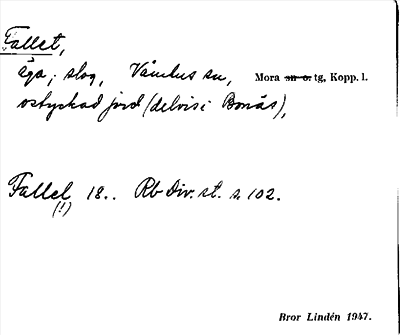 Fallet,
äga; slog, Våmhus sn, Mora sn o. tg, Kopp. l.
ostyckad jord (delvis i Bonäs),
Fallel 18.. Rb Div. st. s. 102.
(!)
Bror Lindén 1947.